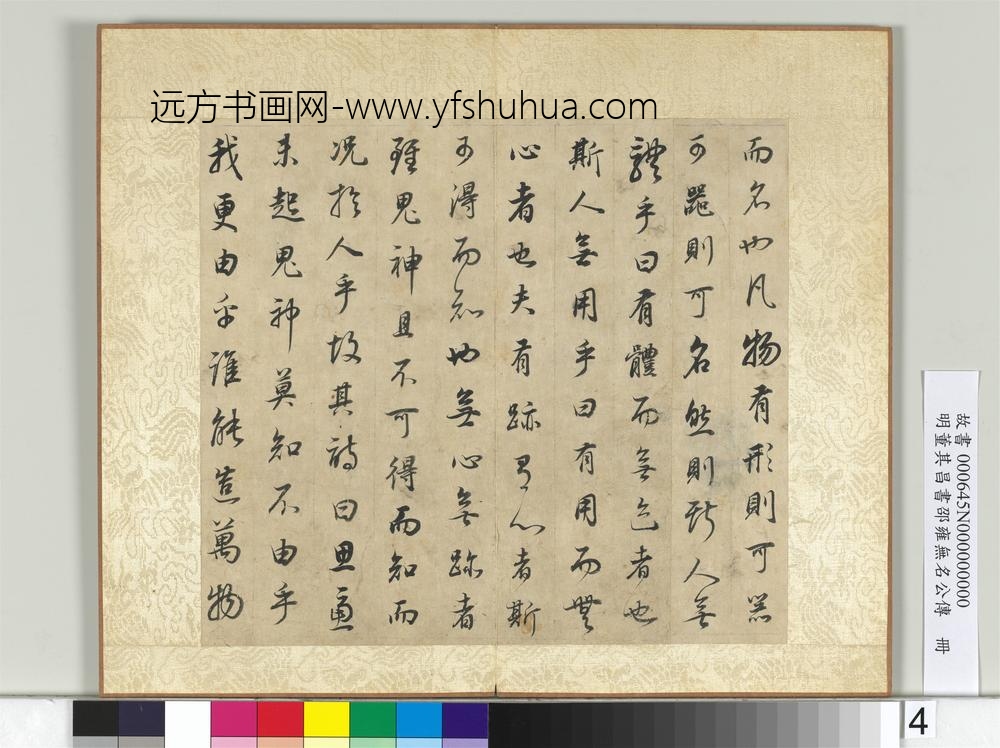 远方书画网-www.yfshuhua.com
而名也凡物有形則可器
可器則可名然則斯人無
體乎曰有體而無迹者也
斯人無用乎曰有用而無
心者也夫有跡有心者斯
可得而知也無心無跡者
雖鬼神且不可得而知而
况於人乎故其詩曰思慮
未起鬼神莫知不由乎
我更由乎誰能造萬物
故書 000645N000000000
明董其昌書邵雍無名公傳 冊
4